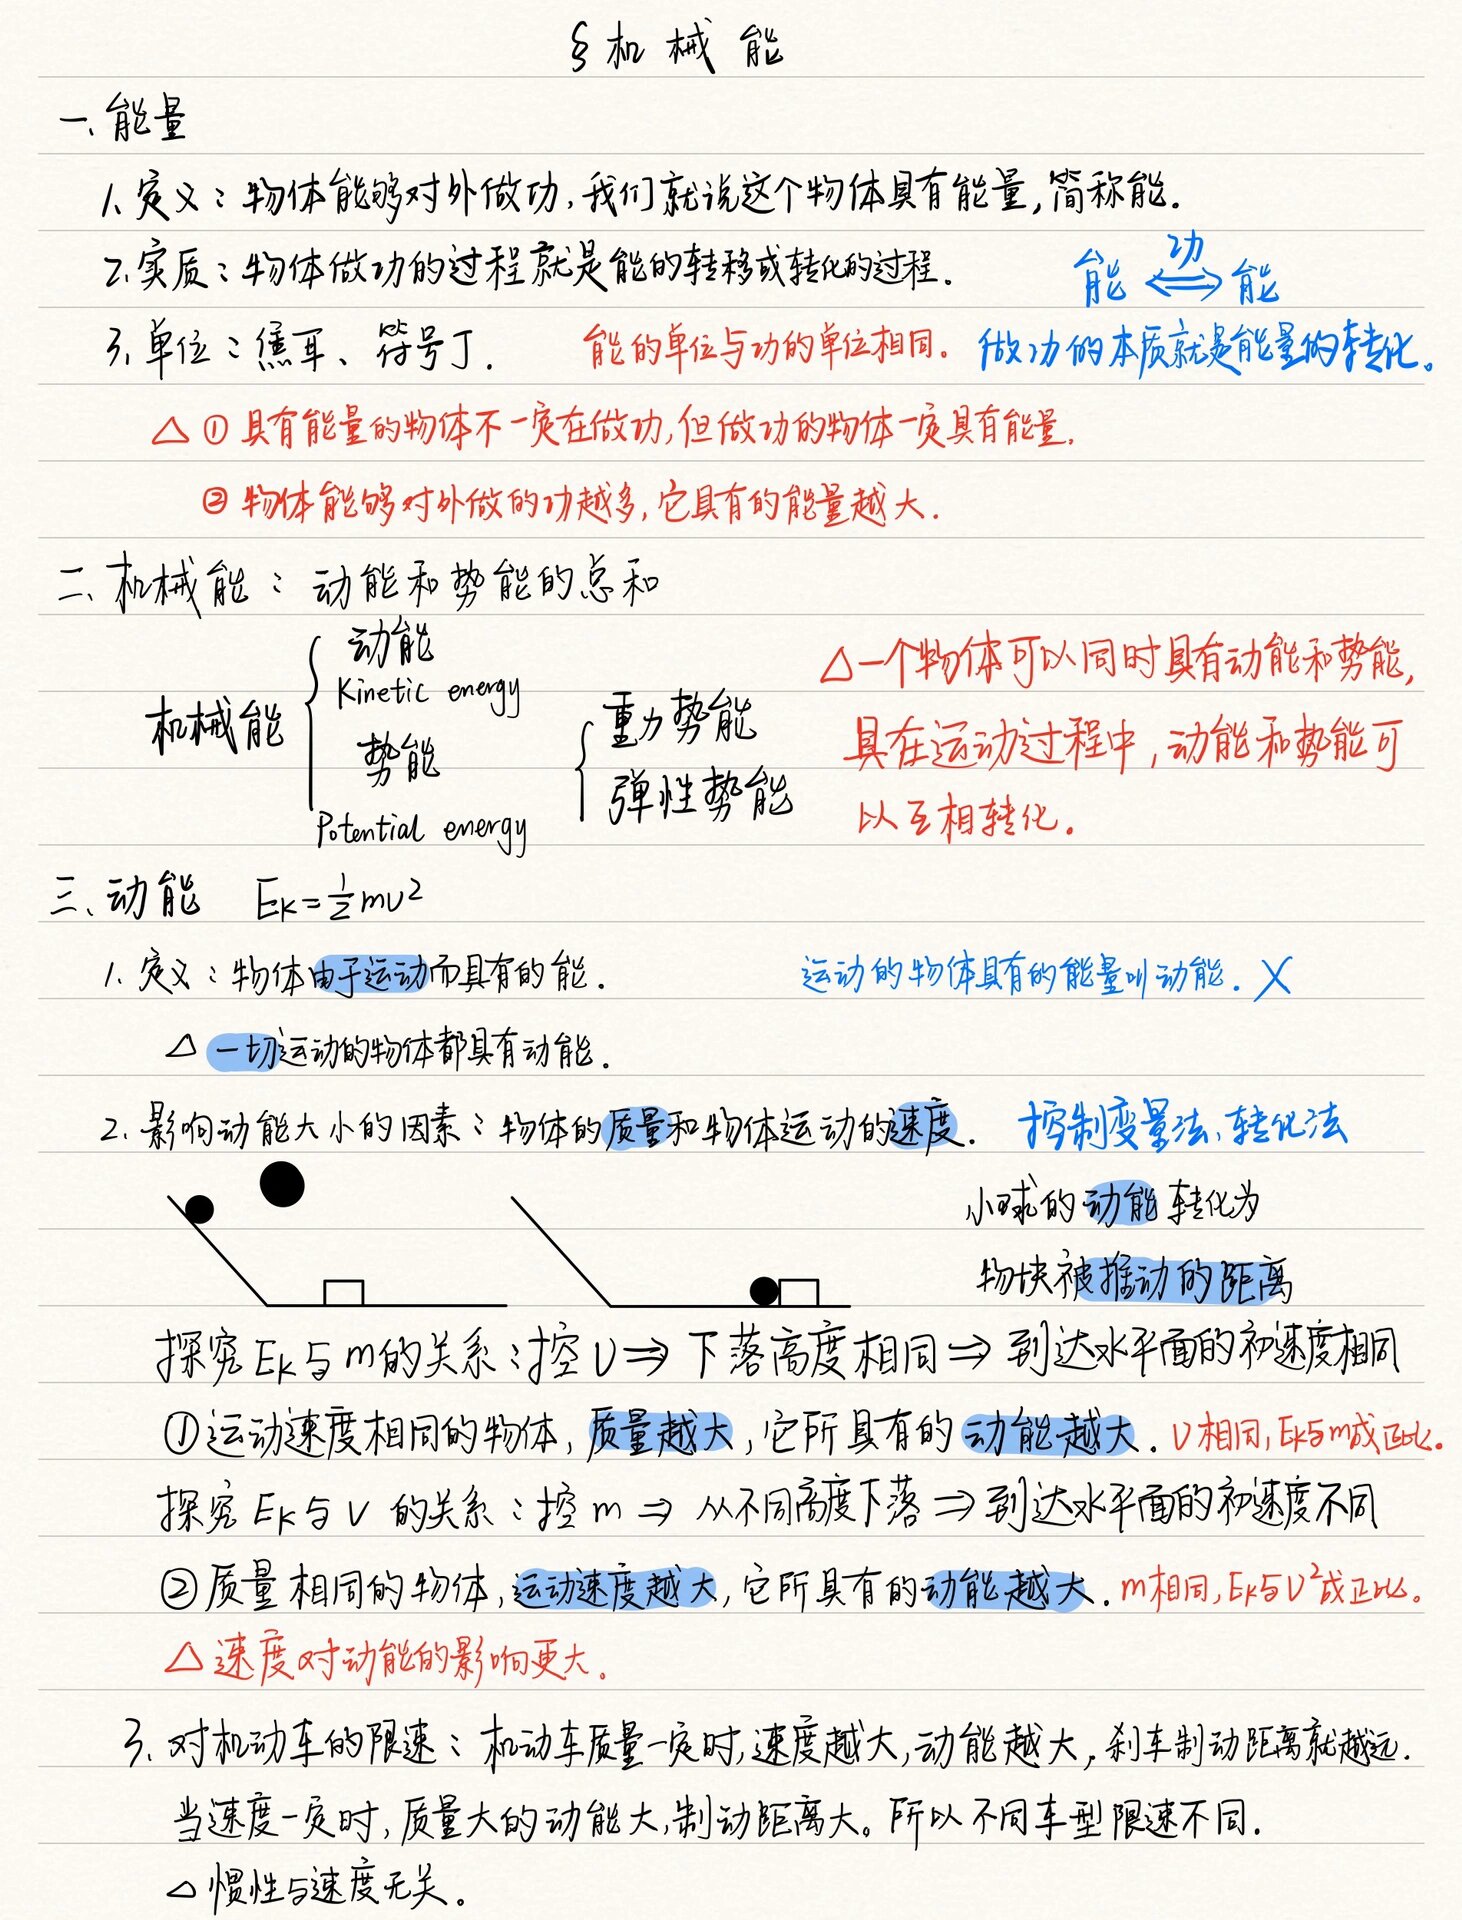 § 机械能
一、能量
1、定义：物体能够对外做功，我们就说这个物体具有能量，简称能.
2、实质：物体做功的过程就是能的转移或转化的过程.
能 功 能
3、单位：焦耳、符号J. 能的单位与功的单位相同. 做功的本质就是能量的转化。
△ ① 具有能量的物体不一定在做功，但做功的物体一定具有能量.
② 物体能够对外做的功越多，它具有的能量越大.
二、机械能：动能和势能的总和
机械能
动能
Kinetic energy
势能
Potential energy
重力势能
弹性势能
△一个物体可以同时具有动能和势能，
具在运动过程中，动能和势能可
以互相转化.
三、动能 Eₖ=½mv²
1. 定义：物体由于运动而具有的能. 运动的物体具有的能量叫动能. ×
△ 一切运动的物体都具有动能.
2. 影响动能大小的因素：物体的质量和物体运动的速度. 控制变量法、转化法
小球的动能转化为
物块被推动的距离
探究Eₖ与m的关系：控v⇒下落高度相同⇒到达水平面的初速度相同
①运动速度相同的物体，质量越大，它所具有的动能越大. v相同，Eₖ与m成正比.
探究Eₖ与v的关系：控m⇒从不同高度下落⇒到达水平面的初速度不同
②质量相同的物体，运动速度越大，它所具有的动能越大. m相同，Eₖ与v²成正比。
△ 速度对动能的影响更大.
3. 对机动车的限速：机动车质量一定时，速度越大，动能越大，刹车制动距离就越远.
当速度一定时，质量大的动能大，制动距离大。所以不同车型限速不同.
△ 惯性与速度无关。